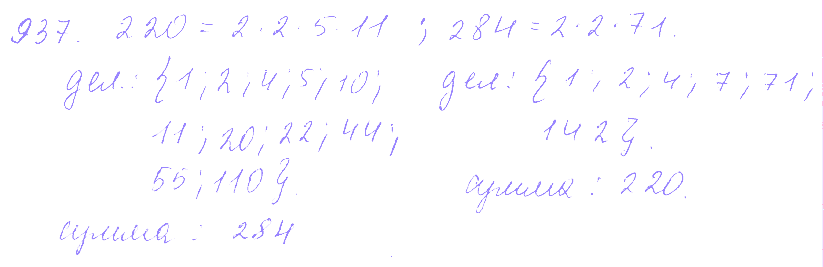 937. 220 = 2·2·5·11 ; 284 = 2·2·71.
дел.: {1; 2; 4; 5; 10; дел.: {1; 2; 4; 7; 71;
11; 20; 22; 44; 142}.
55; 110}. сумма: 220.
сумма: 284